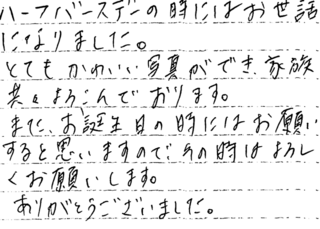 ハーフバースデーの時にはお世話
になりました。
とてもかわいい写真ができ、家族
共々よろこんでおります。
また、お誕生日の時にはお願い
すると思いますので、その時はよろし
くお願いします。
ありがとうございました。